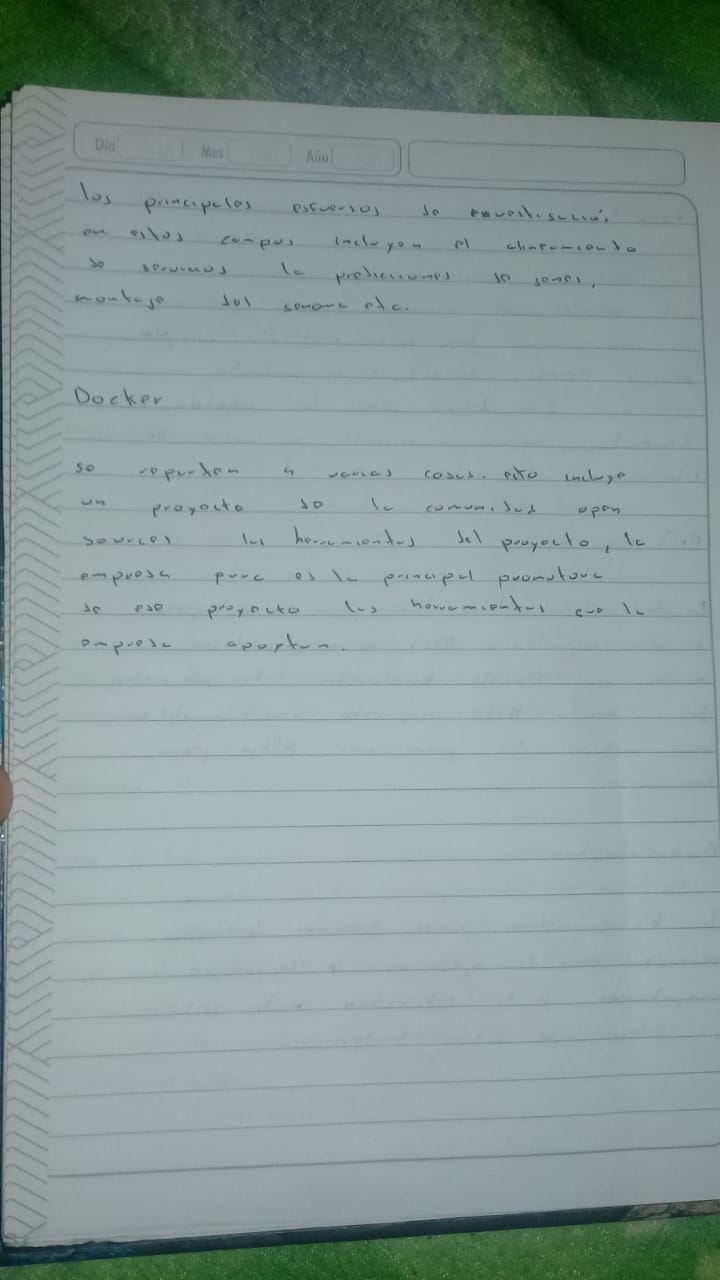 Día Mes Año
los principales esfuerzos de envestigación
en estos campos incluyen el alineamiento
de la predicciones de genes,
montaje del genoma etc.
Docker
se reputen a varias cosas. esto incluye
un proyecto de la comunidad open
sources las herramientas del proyecto, la
empresa pura es la principal promotora
de ese proyecto las herramientas que la
empresa aportan.